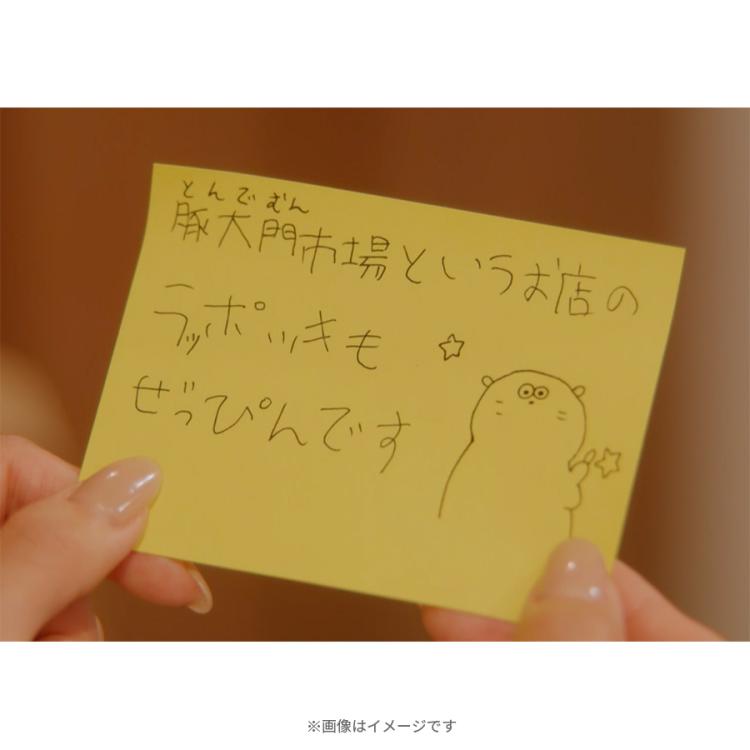 とんでむん
豚大門市場というお店の
ラッポッキも
ぜっぴんです
※画像はイメージです